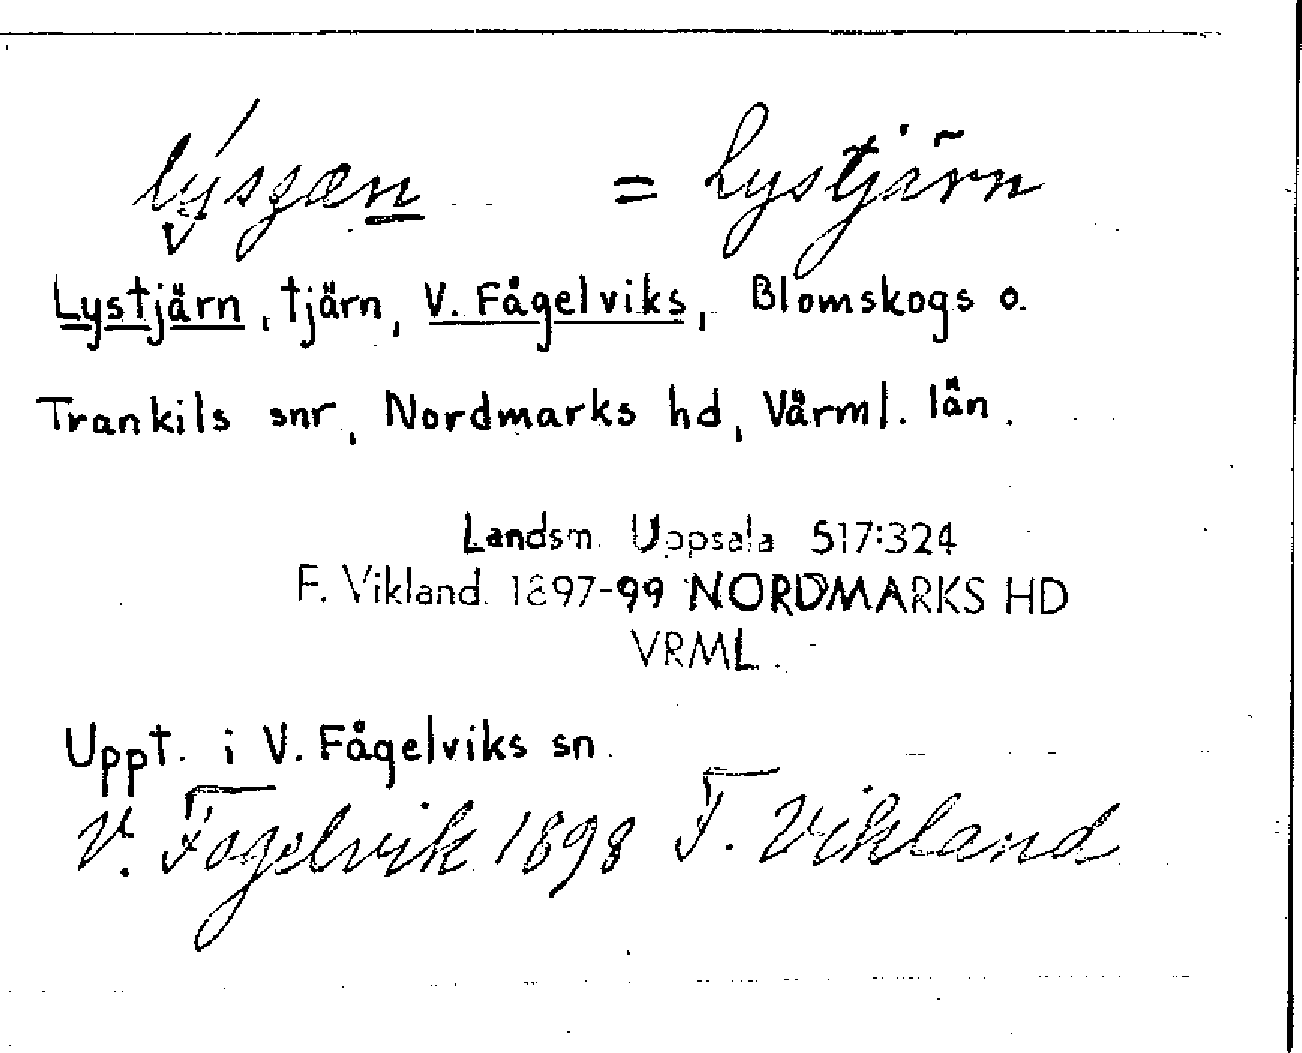 lýsgæn = Lystjärn
Lystjärn, tjärn, V. Fågelviks, Blomskogs o.
Trankils snr, Nordmarks hd, Värml. län.
Landsm. Uppsala 517:324
F. Vikland. 1897-99 NORDMARKS HD
VRML.
Uppt. i V. Fågelviks sn.
V. Fogelvik 1898 F. Vikland